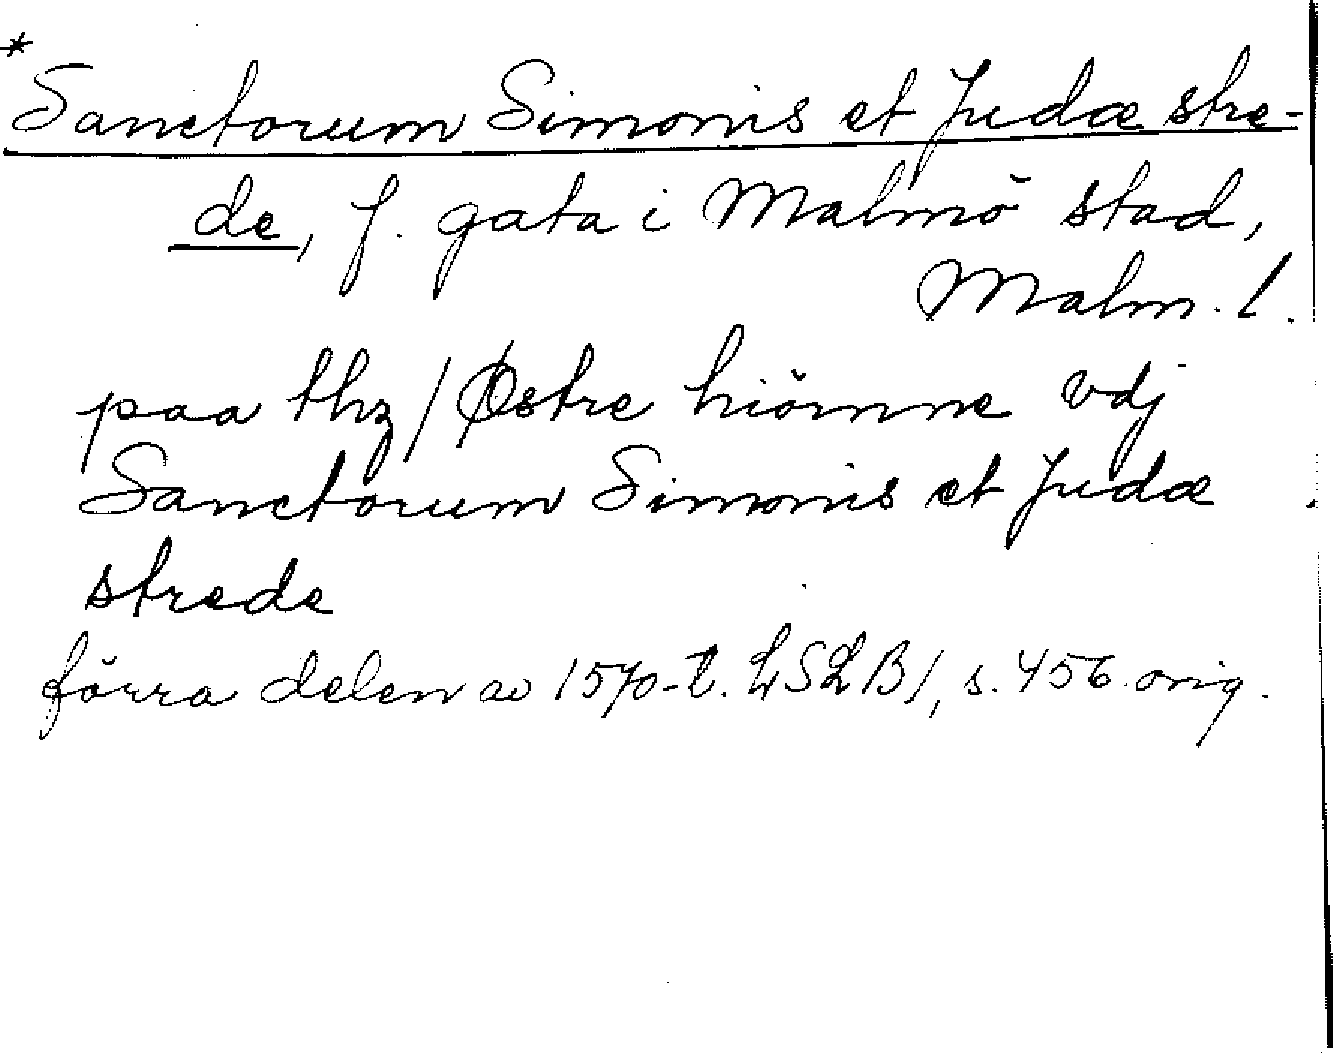 *
Sanctorum Simonis et Judæ stre-
de, f. gata i Malmö stad,
Malm. l.
paa thz / Østre hiörnne vdj
Sanctorum Simonis et Judæ
strede
förra delen av 1570-t. LSLB1, s. 456 orig.